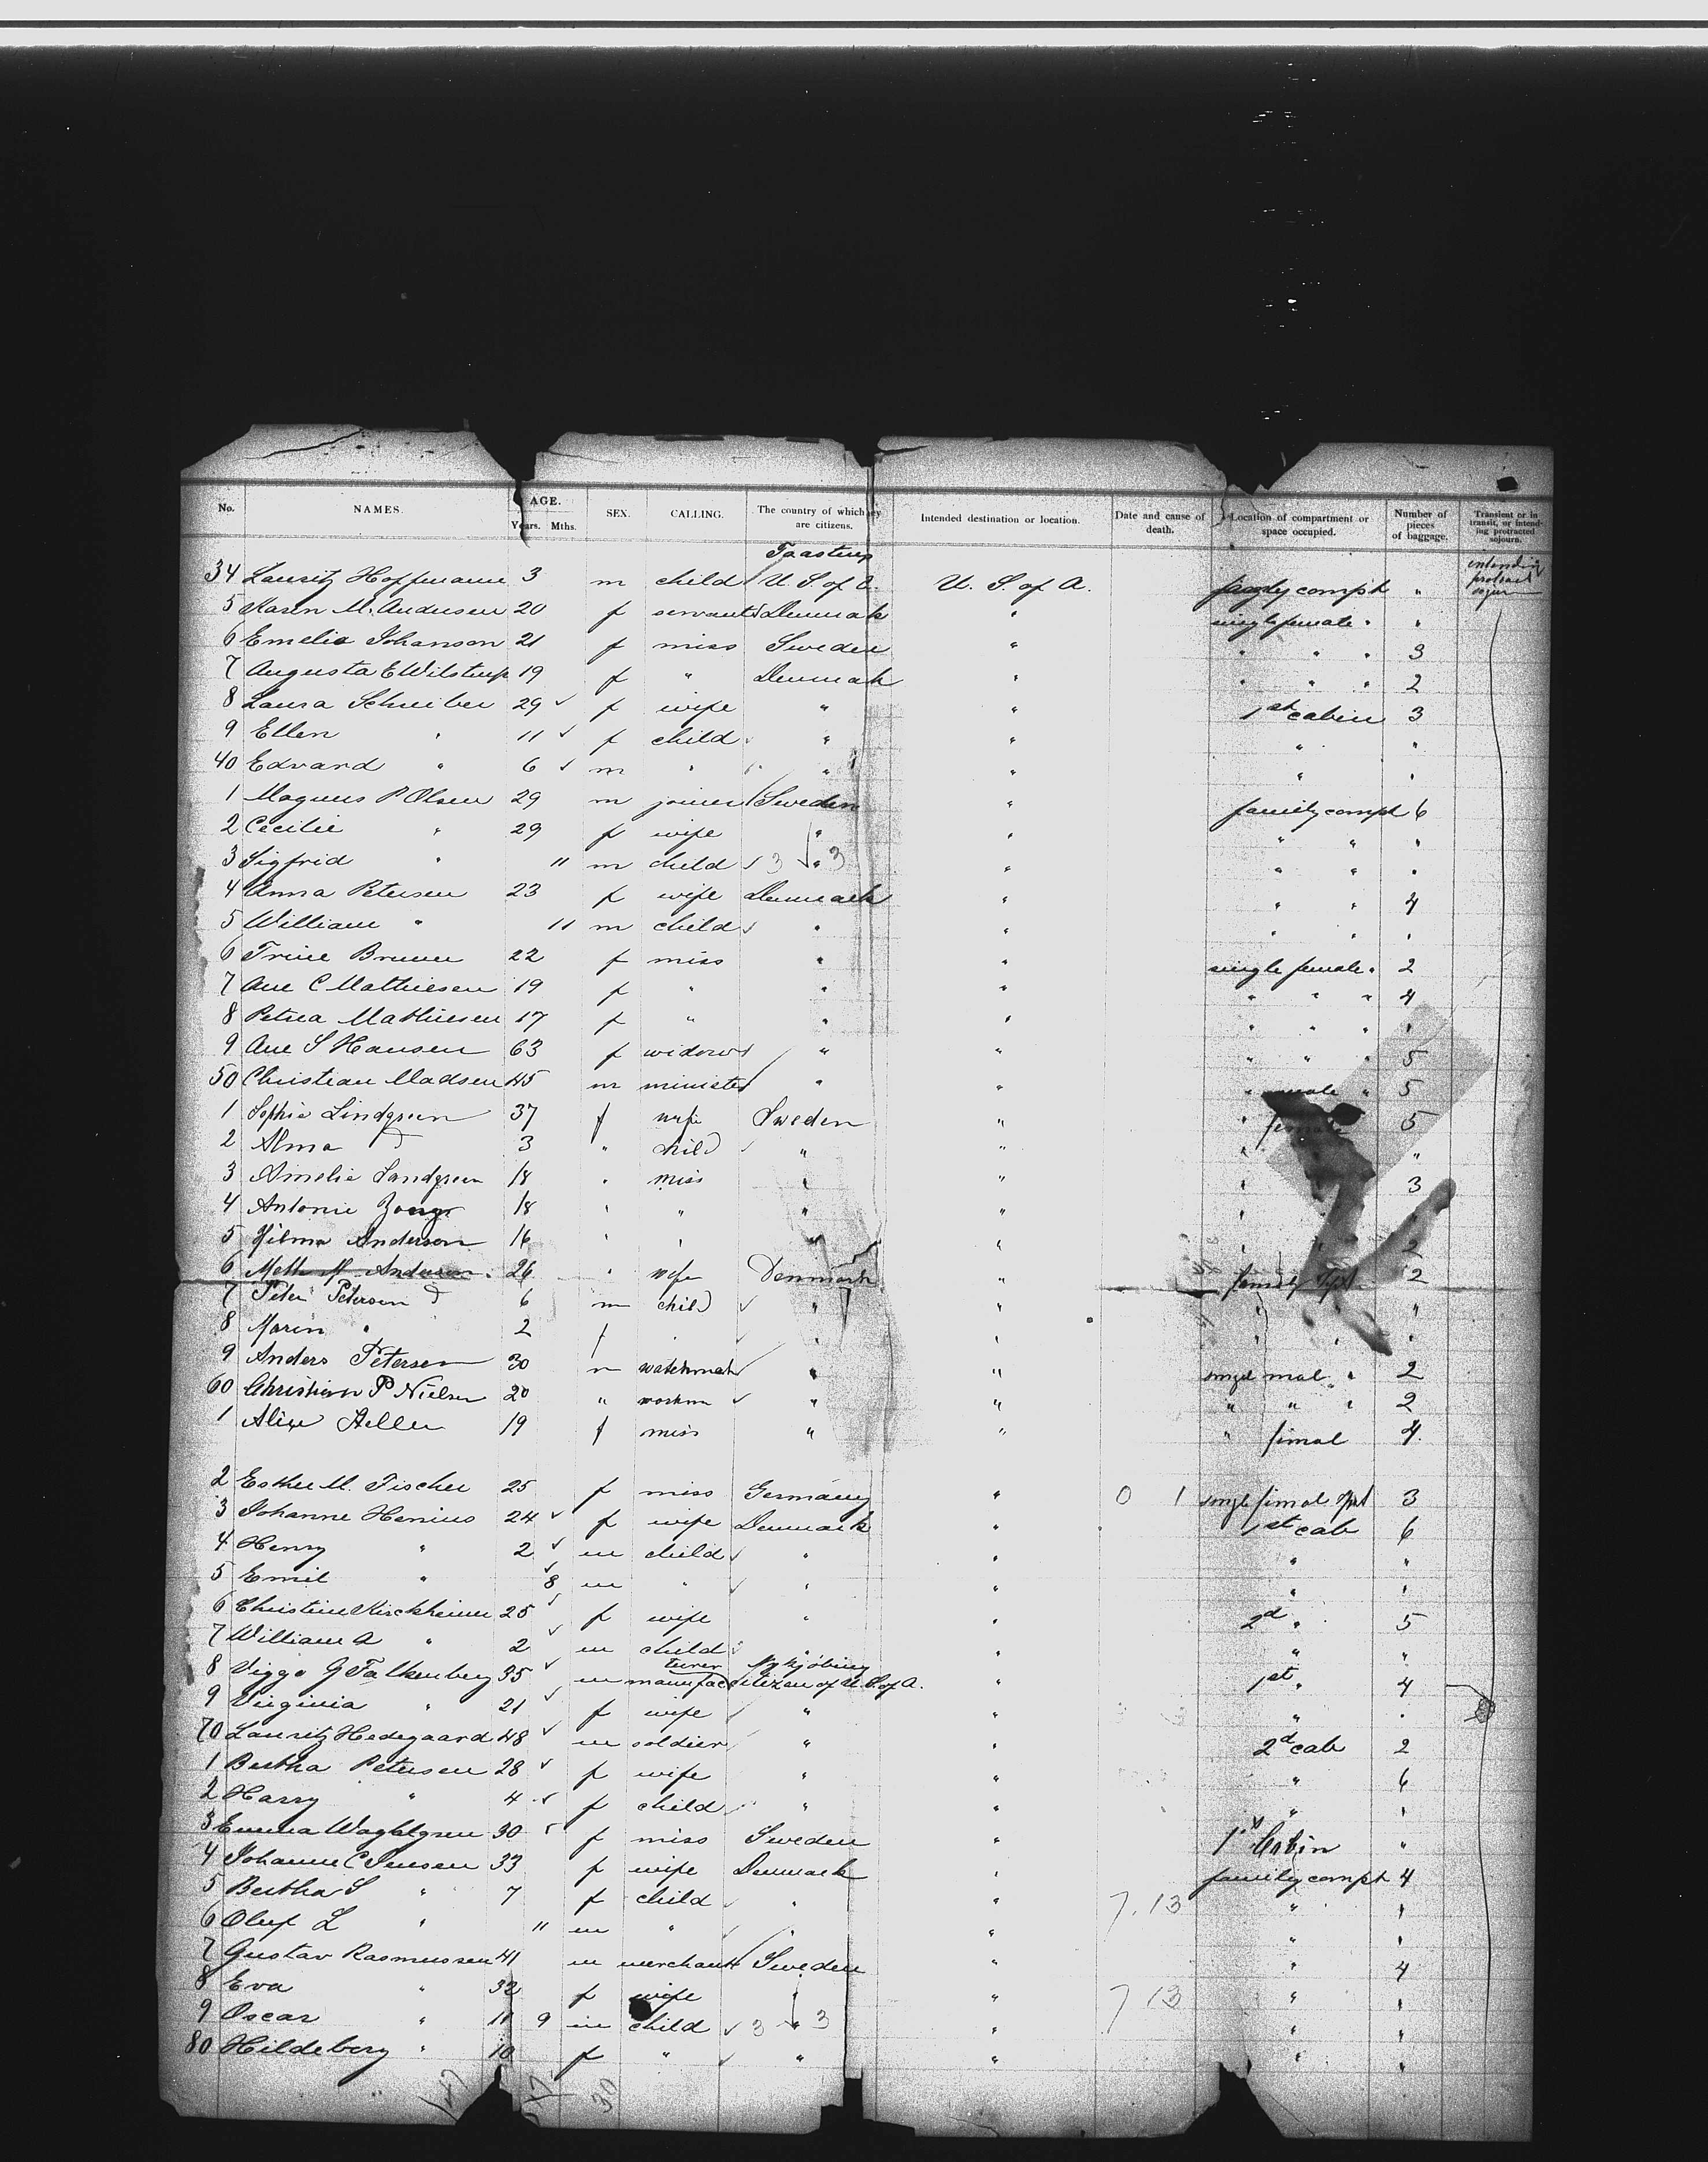 No. NAMES. AGE. Years. Mths. SEX. CALLING. The country of which they are citizens. Intended destination or location. Date and cause of death. Location of compartment or space occupied. Number of pieces of baggage. Transient or in transit, or intending protracted sojourn.
Taastrup
34 Lauritz Hoffmann 3 m child U.S. of A. U. S. of A. family compt " intending protract sojour
5 Karen M. Andersen 20 f servant Denmark " single female " "
6 Emelie Johanson 21 f miss Sweden " " " " 3
7 Augusta E Wilstrup 19 f " Denmark " " " " 2
8 Laura Schreiber 29 f wife " " 1st cabin 3
9 Ellen " 11 f child " " " "
40 Edvard " 6 m " " " " "
1 Magnus P Olsen 29 m joiner Sweden " family compt 6
2 Cecilie " 29 f wife " " " " "
3 Sigfrid " 11 m child 3 " 3 " " " "
4 Anna Petersen 23 f wife Denmark " " " 4
5 William " 11 m child " " " " "
6 Trine Bruun 22 f miss " " single female " 2
7 Ane C Mathiesen 19 f " " " " " " 4
8 Petrea Mathiesen 17 f " " " " " " "
9 Ane S Hansen 63 f widow " " " " " 5
50 Christian Madsen 45 m minister " " " male " 5
1 Sophie Lindgreen 37 f wife Sweden " " female 5
2 Alma " 3 " child " " " "
3 Amelie Landgreen 18 " miss " " " 3
4 Antonie 18 " " " " "
5 Hilma Anderson 16 " " " " " 2
6 Mette M Andersen 26 " wife Denmark " family 2
7 Peter Petersen 6 m child " " " "
8 Maren " 2 f " " " " " "
9 Anders Petersen 30 m watchmak " " singel mal " 2
60 Christian P Nielsen 20 " workm " " " " " 2
1 Alixe Heller 19 f miss " " " fimal 4
2 Esther M. Fischer 25 f miss Germany " 0 1 single fimal 3
3 Johanne Henius 24 f wife Denmark " 1st cab 6
4 Henry " 2 m child " " " "
5 Emil " 8 m " " " " "
6 Christine Kirckheiner 25 f wife " " 2d " 5
7 William A " 2 m child " " " "
8 Viggo G Falkenberg 35 m manufacturer Nykjöbing citizen of U.S. of A. " 1st " 4
9 Virginia " 21 f wife " " " "
70 Lauritz Hedegaard 48 m soldier " " 2d cab 2
1 Bertha Petersen 28 f wife " " " 6
2 Harry " 4 f child " " " "
3 Emma Waghlgren 30 f miss Sweden " 1st Cabin "
4 Johanne C Jensen 33 f wife Denmark " family compt 4
5 Bertha S " 7 f child " " 7.13 " "
6 Oluf L " 11 m " " " " "
7 Gustav Rasmussen 41 m merchant Sweden " " 4
8 Eva " 32 f wife " " 7 13 " "
9 Oscar " 11 9 m child 3 " 3 " " "
80 Hildeborg " 10 f " " " " "
30